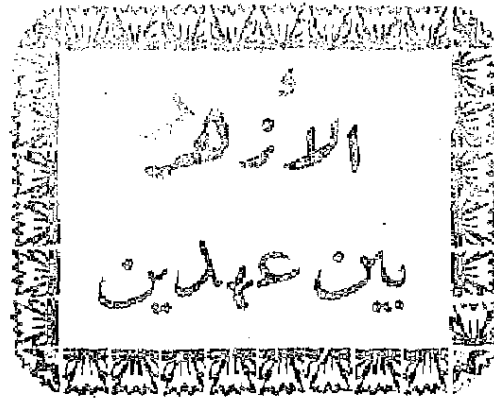 الأزهر
بين عهدين